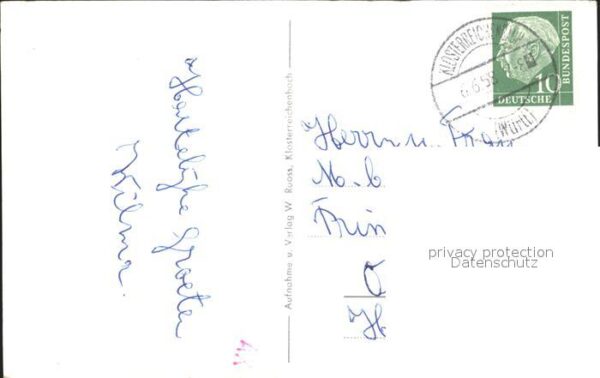 Hartelijke Groeten
Wilma.
Aufnahme u. Verlag W. Ruoss, Klosterreichenbach
KLOSTERREICHENBACH
6.6.58
(Württ)
10
DEUTSCHE
BUNDESPOST
Herrn u. Frau
privacy protection
Datenschutz